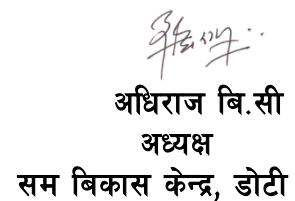 अधिराज बि.सी
अध्यक्ष
सम बिकास केन्द्र, डोटी